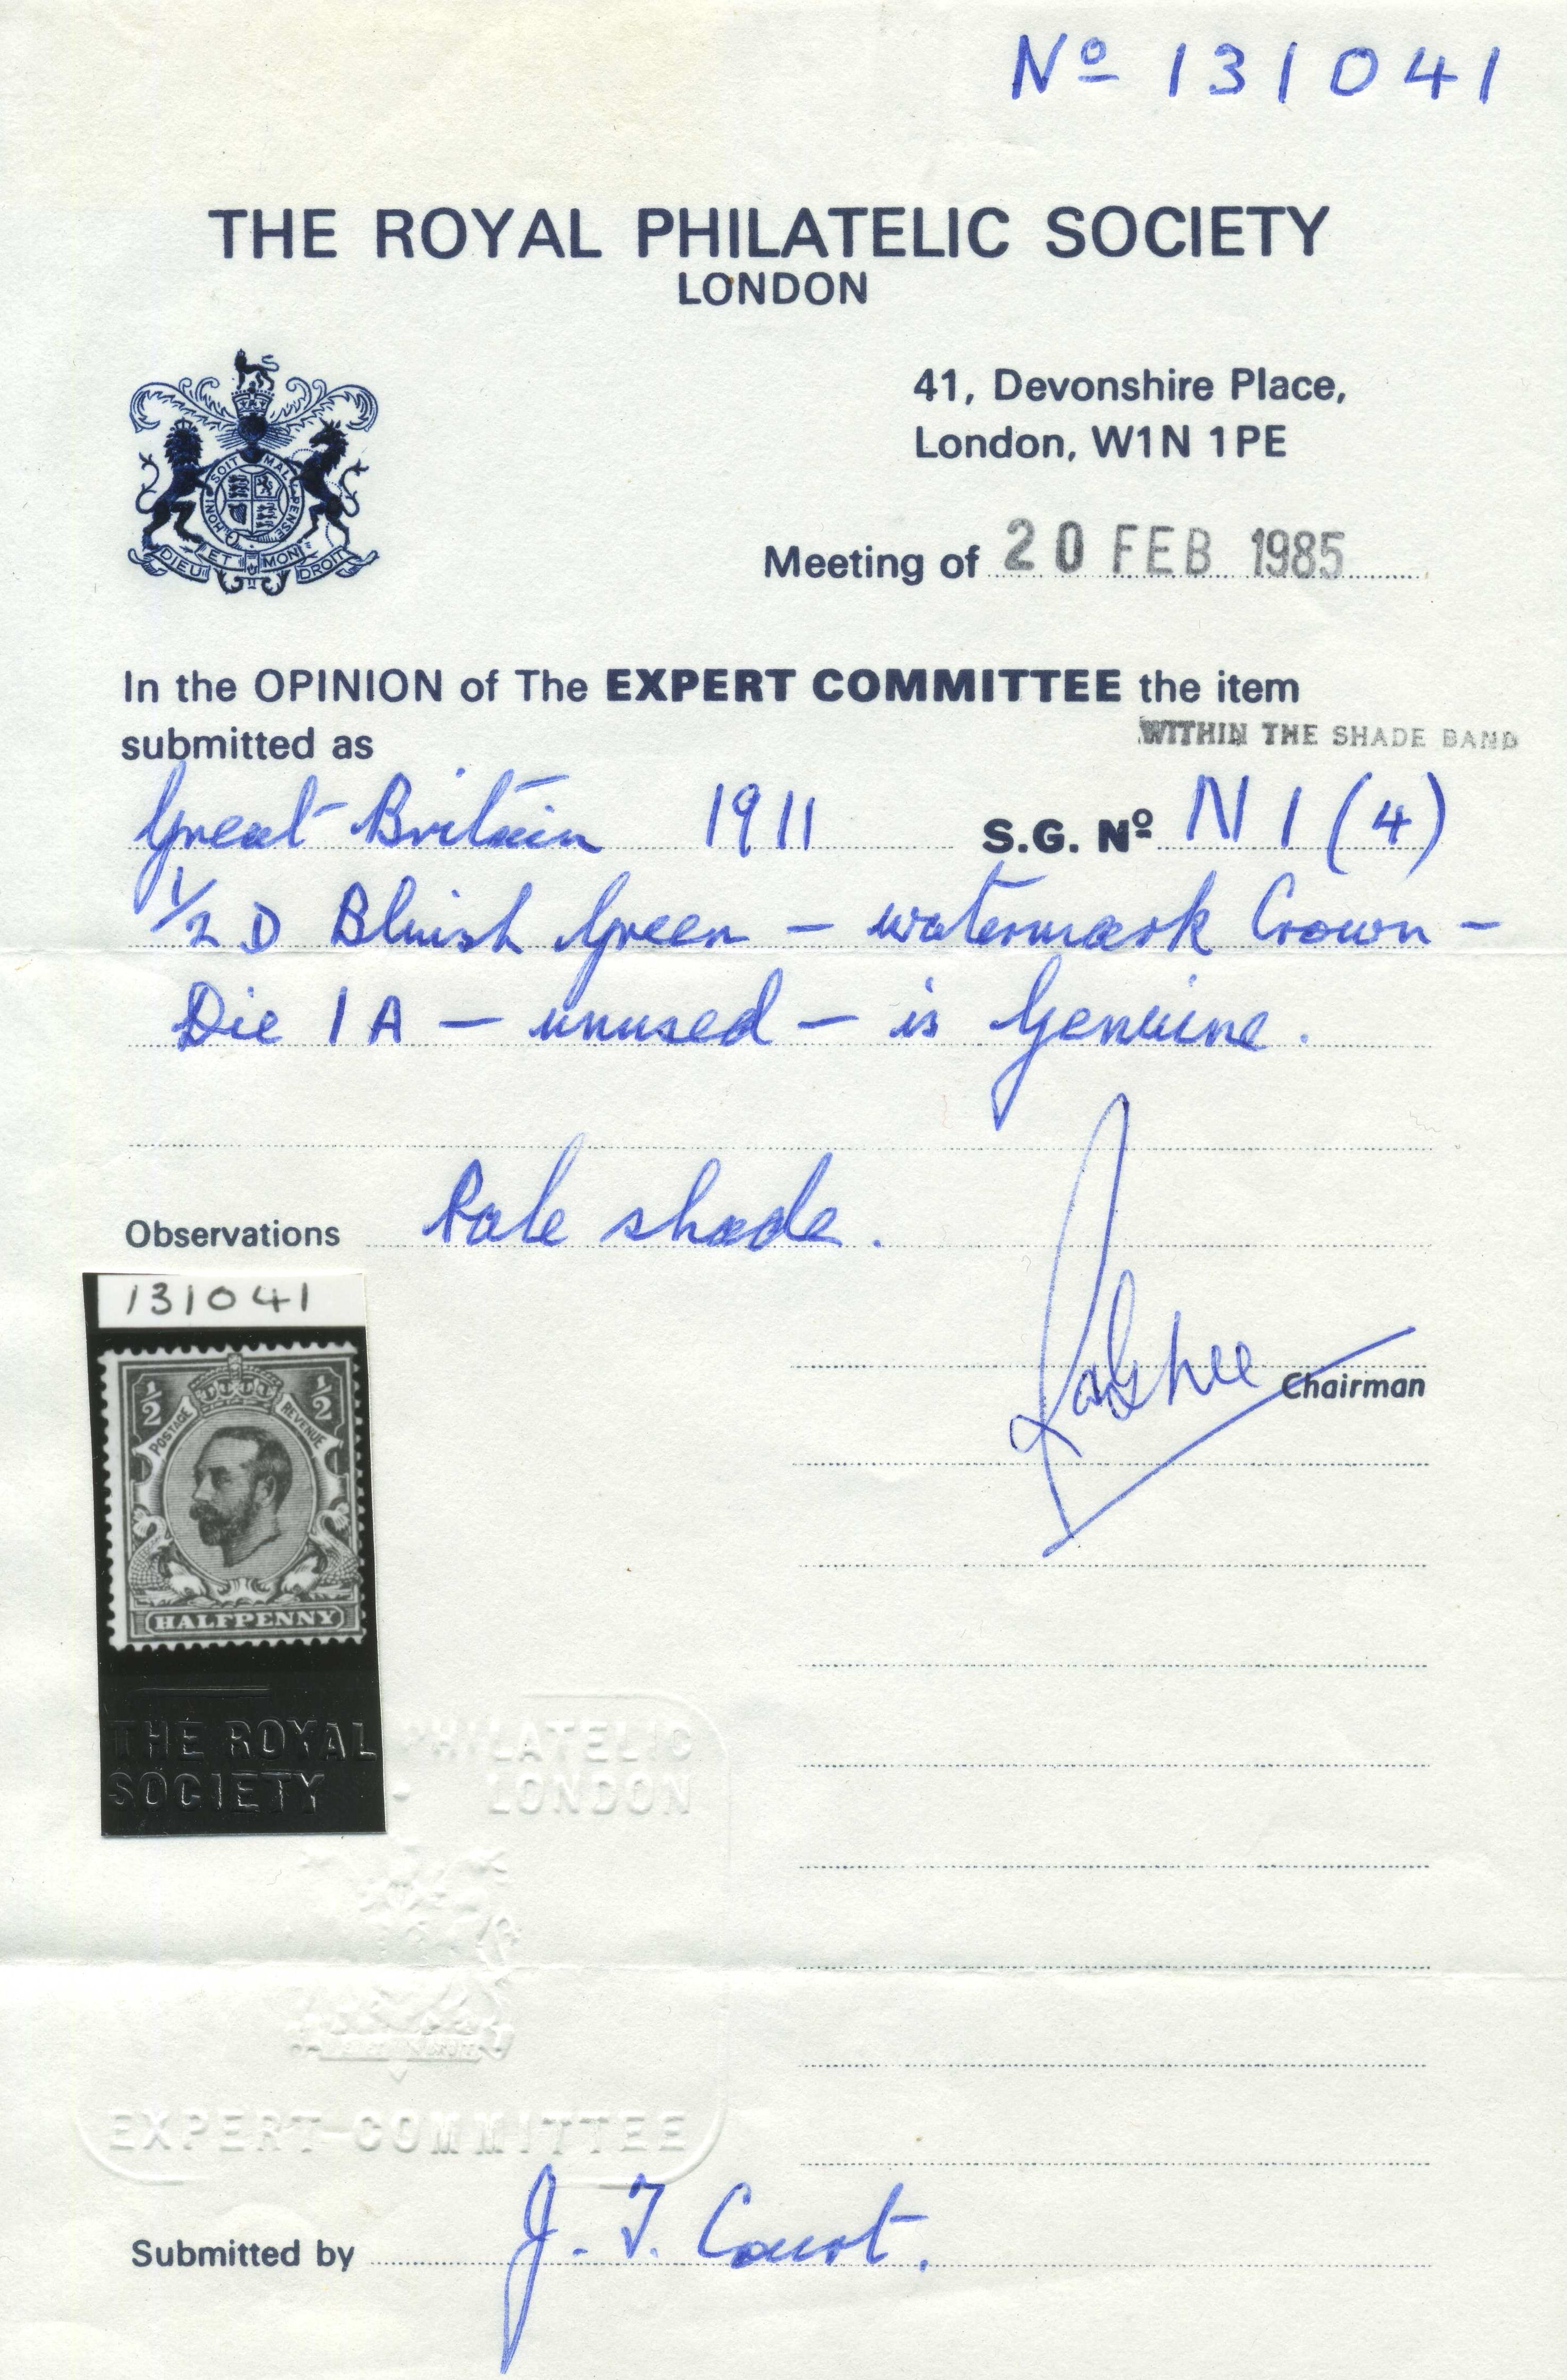 Nº 131041
THE ROYAL PHILATELIC SOCIETY
LONDON
HONI SOIT MAL PENSE
DIEU ET MON DROIT
41, Devonshire Place,
London, W1N 1PE
Meeting of 20 FEB 1985
In the OPINION of The EXPERT COMMITTEE the item
submitted as
WITHIN THE SHADE BAND
Great Britain 1911 S.G. Nº N1(4)
1/2 D Bluish Green – watermark Crown –
Die 1A – unused – is Genuine.
Observations Pale shade.
131041
1/2 1/2
POSTAGE REVENUE
HALFPENNY
Chairman
THE ROYAL PHILATELIC
SOCIETY • LONDON
EXPERT COMMITTEE
Submitted by J. T. Court.